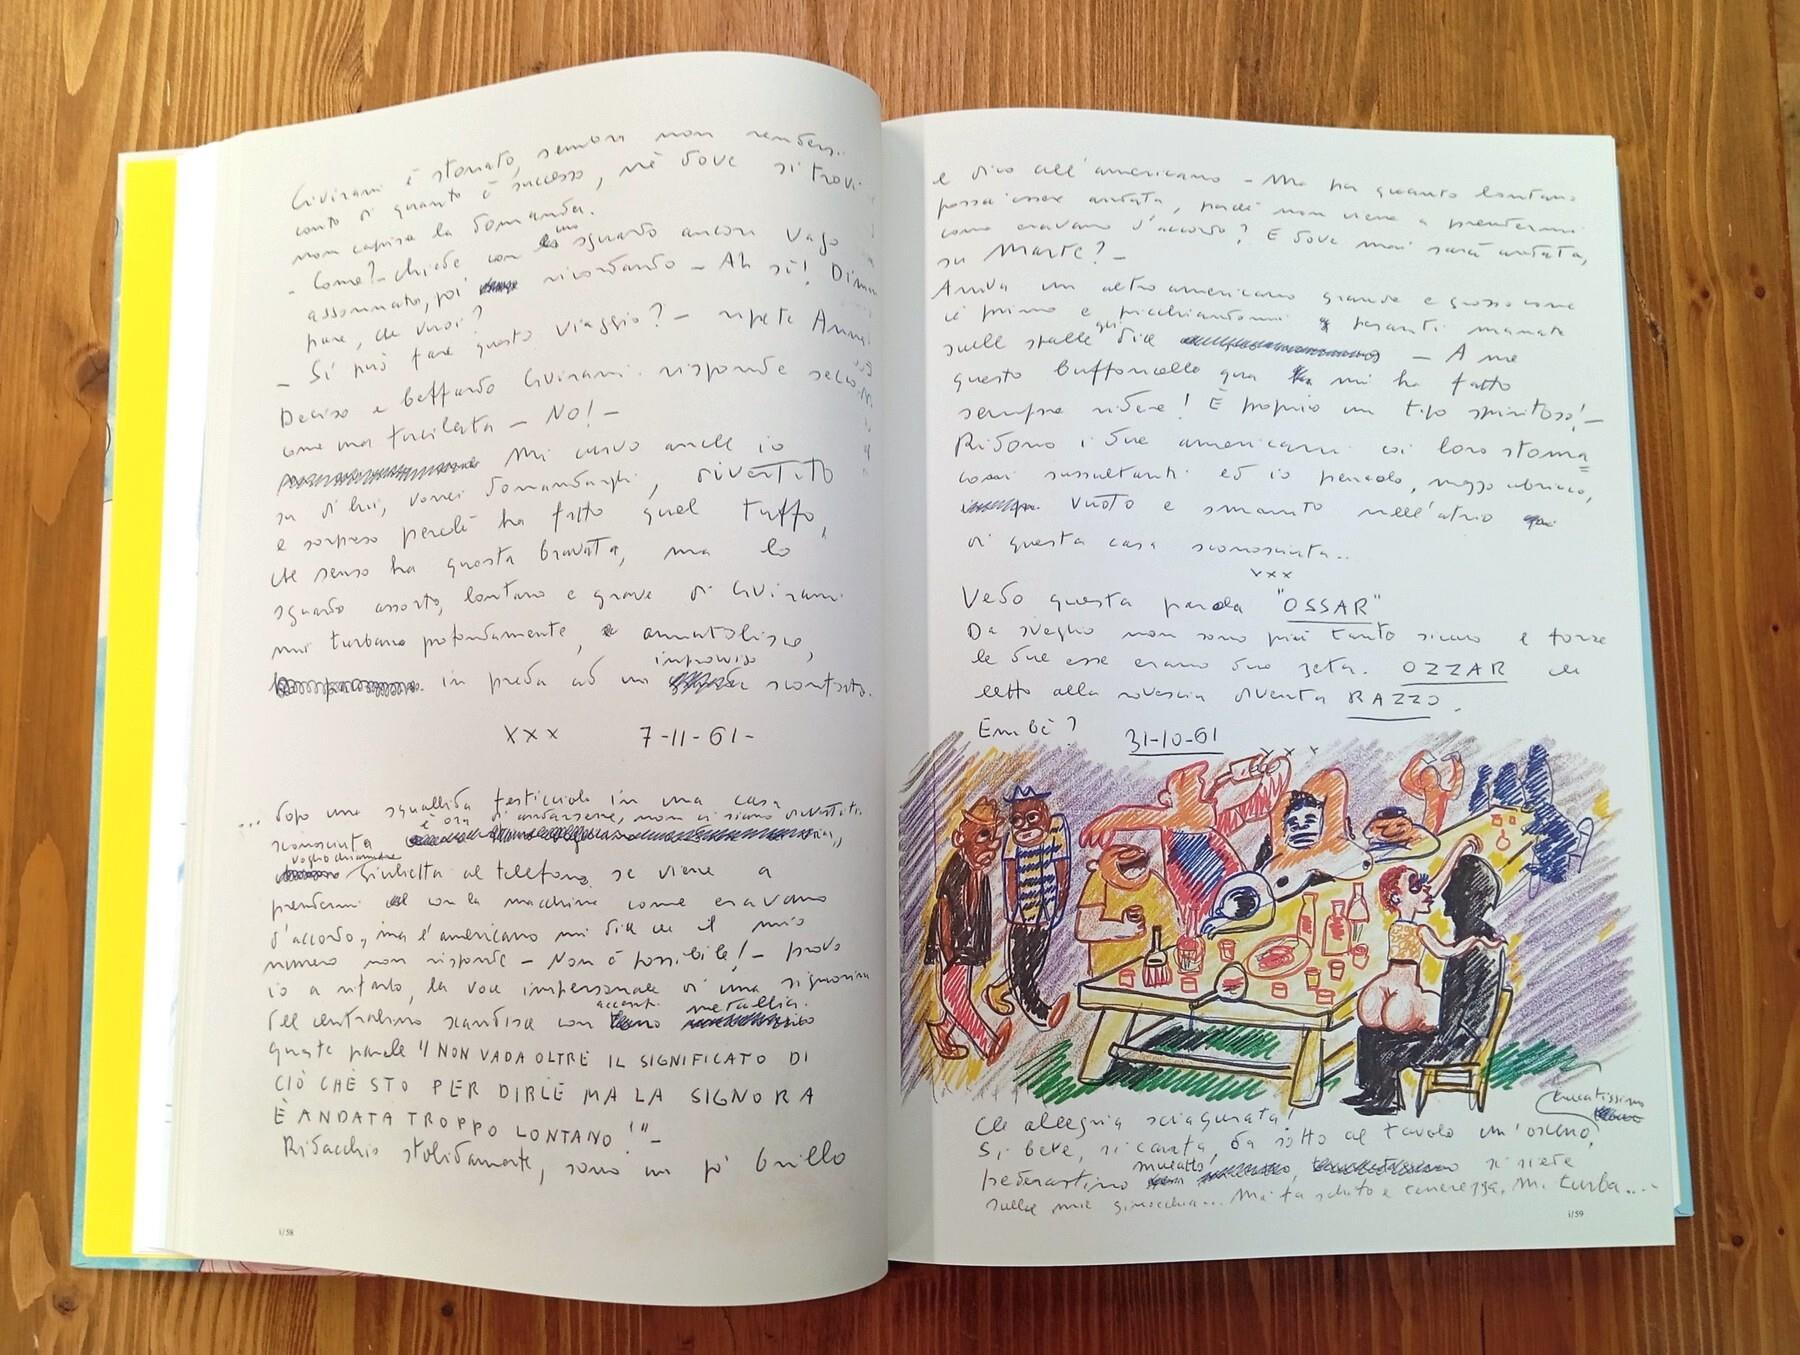 Civirani è stonato, sembra non rendersi
conto di quanto è successo, nè dove si trovi
non capisce la domanda.
- Come? - chiede con uno sguardo ancora vago
assonnato, poi ricordando - Ah sì! Dimmi
pure, che vuoi?
- Si può fare questo viaggio? - ripete
Deciso e beffardo Civirani risponde secco
come una fucilata - No! -
Mi curvo anche io
su di lui, vorrei domandargli, divertito
e sorpreso perchè ha fatto quel tuffo,
che senso ha questa bravata, ma lo
sguardo assorto, lontano e grave di Civirani
mi turbano profondamente, ammutolisco,
in preda ad un improvviso sconforto.
XXX 7-11-61-
... dopo una squallida festicciola in una casa
sconosciuta è ora di andarsene, non ci siamo divertiti,
voglio chiamare Giulietta al telefono se viene a
prendermi con la macchina come eravamo
d'accordo, ma l'americano mi dice che il mio
numero non risponde - Non è possibile! - provo
io a rifarlo, la voce impersonale di una signorina
del centralino scandisce con accenti metallici
queste parole "NON VADA OLTRE IL SIGNIFICATO DI
CIÒ CHE STO PER DIRLE MA LA SIGNORA
È ANDATA TROPPO LONTANO!" -
Ridacchio stolidamente, sono un po' brillo
i/58
e dico all'americano - Ma per quanto lontano
possa essere andata, perchè non viene a prendermi
come eravamo d'accordo? E dove mai sarà andata,
su Marte? -
Arriva un altro americano grande e grosso come
il primo e picchiandomi pesanti manate
sulle spalle gli dice - A me
questo buffoncello qua mi ha fatto
sempre ridere! È proprio un tipo spiritoso! -
Ridono i due americani coi loro stoma=
coni sussultanti ed io penzolo, mezzo ubriaco,
vuoto e smarrito nell'atrio
di questa casa sconosciuta..
XXX
Vedo questa parola "OSSAR"
Da sveglio non sono più tanto sicuro e forse
le due esse erano due zeta. OZZAR che
letto alla rovescia diventa RAZZO.
Embè? 31-10-61
XXX
Che allegria sciagurata! truccatissimo
Si beve, si canta, da sotto al tavolo un'osceno,
pederastino mulatto, si siede
sulle mie ginocchia... Mi fa schifo e tenerezza. Mi turba....
i/59